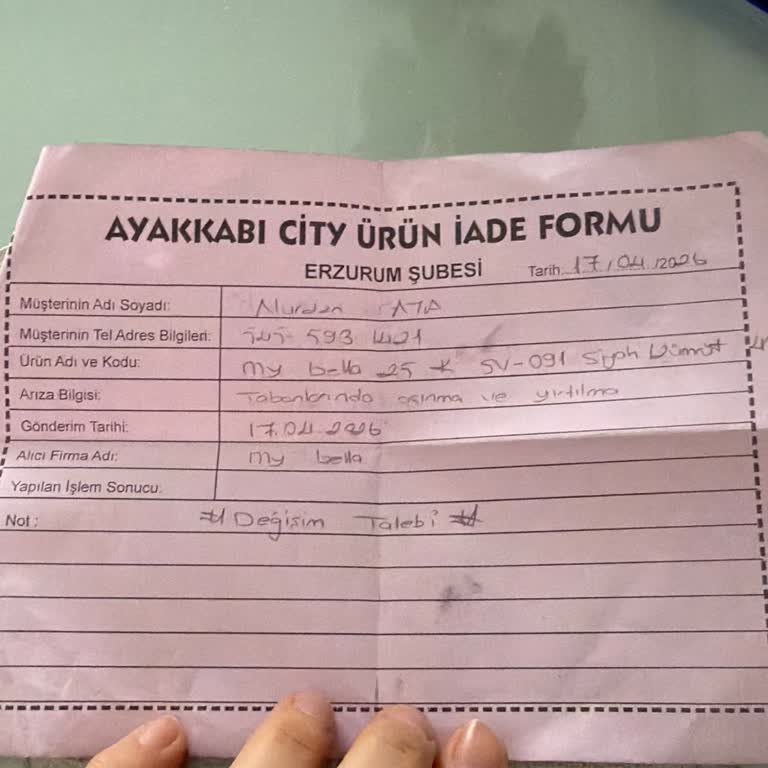 AYAKKABI CİTY ÜRÜN İADE FORMU
ERZURUM ŞUBESİ
Tarih: 17/04/2026
Müşterinin Adı Soyadı: Nurdan ATA
Müşterinin Tel Adres Bilgileri: 593
Ürün Adı ve Kodu: my bella 25 K SV-091 Siyah
Arıza Bilgisi: Tabanlarında aşınma ve yırtılma
Gönderim Tarihi: 17.04.2026
Alıcı Firma Adı: my bella
Yapılan İşlem Sonucu:
Not : Değişim Talebi